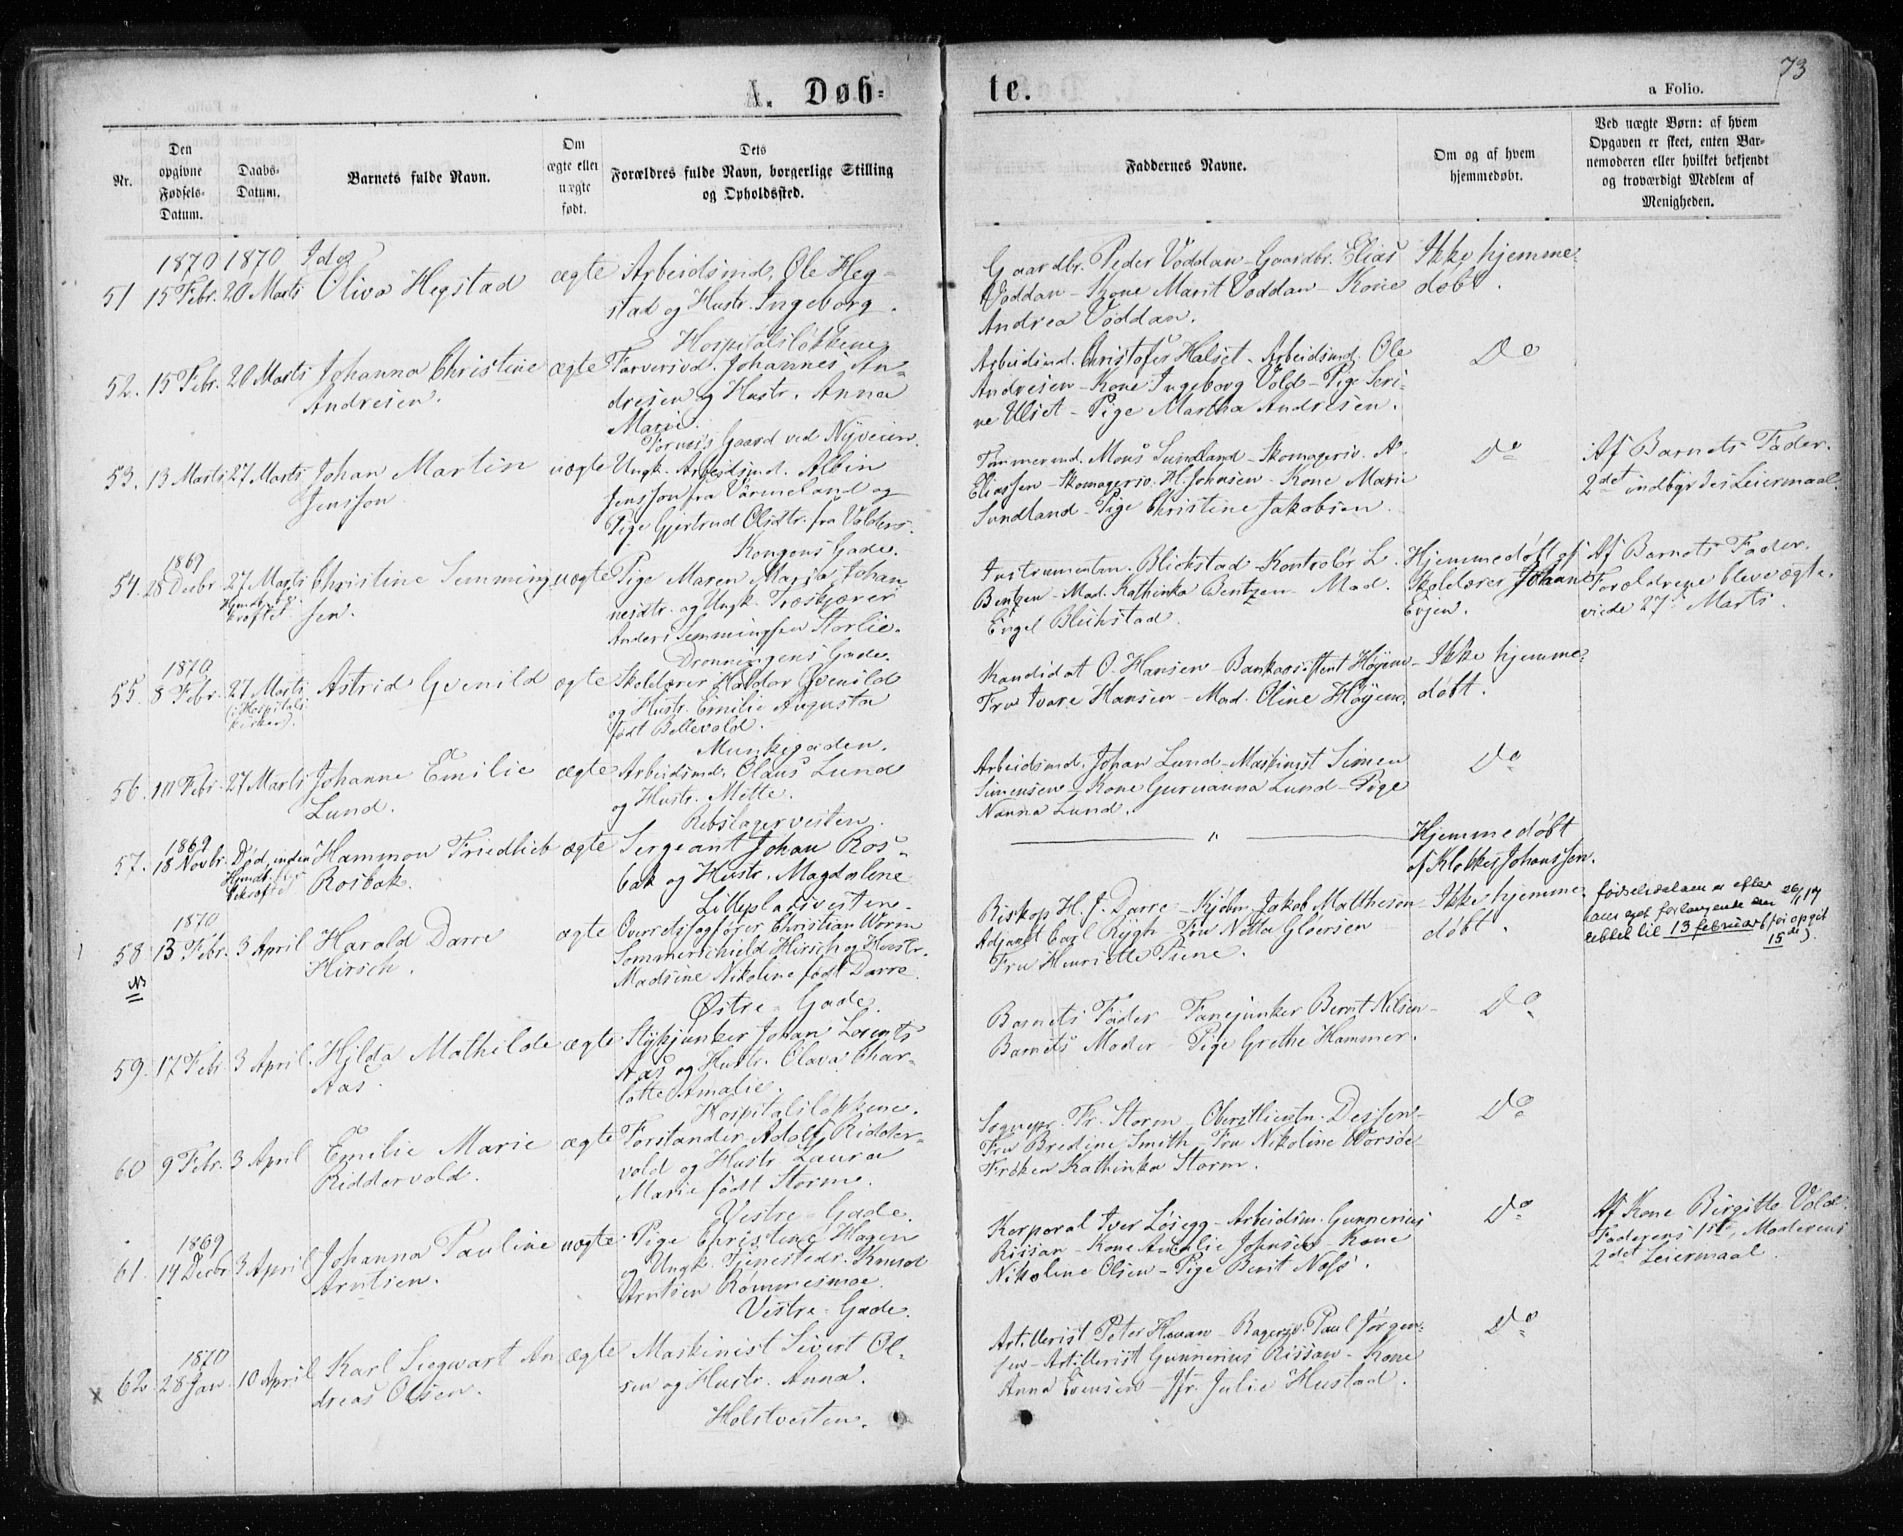 73
A. Døb-
te.
a Folio.
Nr.
Den
opgivne
Fødsels-
Datum.
Daabs-
Datum.
Barnets fulde Navn.
Om
ægte eller
uægte
født.
Dets
Forældres fulde Navn, borgerlige Stilling
og Opholdssted.
Faddernes Navne.
Om og af hvem
hjemmedøbt.
Ved uægte Børn: af hvem
Opgaven er skeet, enten Bar-
nemoderen eller hvilket bekjendt
og troværdigt Medlem af
Menigheden.
1870 1870 Ida
51 15 Febr. 20 Marts Oliva Hegstad ægte Arbeidsmd. Ole Heg-
stad og Hustr. Ingeborg.
Hospitalsløkkene
Gaardbr. Peder Voddan - Gaardbr. Elias
Voddan - Kone Marit Voddan - Kone
Andrea Voddan.
Ikke hjemme-
døbt.
52. 15 Febr. 20 Marts Johanna Christine ægte Farversvd. Johannes An-
Andresen. dresen og Hustr. Anna
Marie.
Fornæs Gaard ved Nyveien.
Arbeidsmd. Christofer Halset - Arbeidsmd. Ole
Andresen - Kone Ingeborg Vold - Pige Seri-
ne Ulset - Pige Martha Andresen.
Do
53. 13 Marts 27 Marts Johan Martin uægte Ungk. Arbeidsmd. Albin
Jensson Jensson fra Värmeland og
Pige Gjertrud Olsdtr. fra Valders.
Kongens Gade.
Tømmermd. Mons Sundland - Skomagersv. A.
Eliassen - Skomagersv. H. Johnsen - Kone Marie
Sundland - Pige Christine Jakobsen.
Do
Af Barnets Fader.
2det indbyrdes Leiermaal.
1869
54. 28 Decbr. 27 Marts Christine Semming- uægte Pige Maren Maria Johan-
sen. nesdtr. og Ungk. Træskjærer
Anders Semmingsen Storlie.
Dronningens Gade.
Instrumentm. Blickstad - Kontrolør L.
Bentzen - Mad. Kathinka Bentzen - Mad.
Engel Blichstad.
Hjemmedøbt af
Skolelærer Johannes
Evjen.
Af Barnets Fader.
Forældrene bleve ægte-
viede 27. Marts.
1870
55. 8 Febr. 27 Marts Astrid Gvenild ægte Skolelærer Haldor Gvenild
(i Hospitals-
kirken). og Hustr. Emilie Augusta
født Bellevald.
Munkegaden.
Kandidat O. Hansen - Bankassistent Høyem -
Fru Ivare Hansen - Mad. Oline Høyem.
Ikke hjemme-
døbt.
56. 10 Febr. 27 Marts Johanne Emilie ægte Arbeidsmd. Olaus Lund
Lund. og Hustr. Mette.
Rebslagerveiten.
Arbeidsmd. Johan Lund - Maskinist Simen
Simensen - Kone Gurianna Lund - Pige
Nanna Lund.
Do
1869
57. 18 Novbr. Død inden Hammon Friedlieb ægte Sergeant Johan Ros-
Rosbak. bak og Hustr. Magdalene
Lillepladsveiten.
"
Hjemmedøbt
af Klokker Johanssen.
1870
58 13 Febr. 3 April Harald Darre ægte Overretssagfører Christian Worm
NB Hirsch. Sommerschield Hirsch og Hustr.
Madsine Nikoline født Darre.
Østre-Gade.
Biskop H. J. Darre - Kjøbm. Jakob Matheson -
Adjunkt Carl Rygh - Fru Notta Gløersen -
Fru Henriette Piene.
Ikke hjemme-
døbt.
fødselsdatoen er efter
rettet til 13 februar (før opgit
15de).
59. 17 Febr. 3 April. Hilda Mathilde ægte Stykjunker Johan Lorents
Aas. Aas og Hustr. Olava Char-
lotte Amalie.
Hospitalsløkkene.
Barnets Fader - Fanejunker Bernt Nilsen -
Barnets Moder - Pige Grethe Hammer.
Do
60 9 Febr. 3 April Emilie Marie ægte Forstander Adolf Ridder-
Riddervold. vold og Hustr. Laura
Marie født Storm.
Vestre-Gade.
Sognepr. Fr. Storm - Oberstlieutn. Dessen -
Fru Bredine Smith - Fru Nikoline Worsøe
Frøken Kathinka Storm.
Do
1869
61. 14 Decbr. 3 April Johanna Pauline uægte Pige Christine Hagen
Arntsen. og Ungk. Tjenestedr. Knud
Arntsen Rømmesmoe.
Vestre-Gade.
Korporal Iver Løsegg - Arbeidsm. Gunnerius
Rissan - Kone Amalie Johnsen - Kone
Nikoline Olsen - Pige Berit Næss.
Do
Af Kone Birgitte Vold.
Faderens 1ste, Moderens
2det Leiermaal.
1870
x 62. 28 Jan. 10 April Karl Siegwart An- ægte Maskinist Sivert Ol-
dreas Olsen. sen og Hustr. Anna.
Holstveiten.
Artillerist Peter Havan - Bagersv. Paul Jørgen-
sen - Artillerist Gunnerius Rissan - Kone
Anna Evensen - Jfr. Julie Hustad.
Do